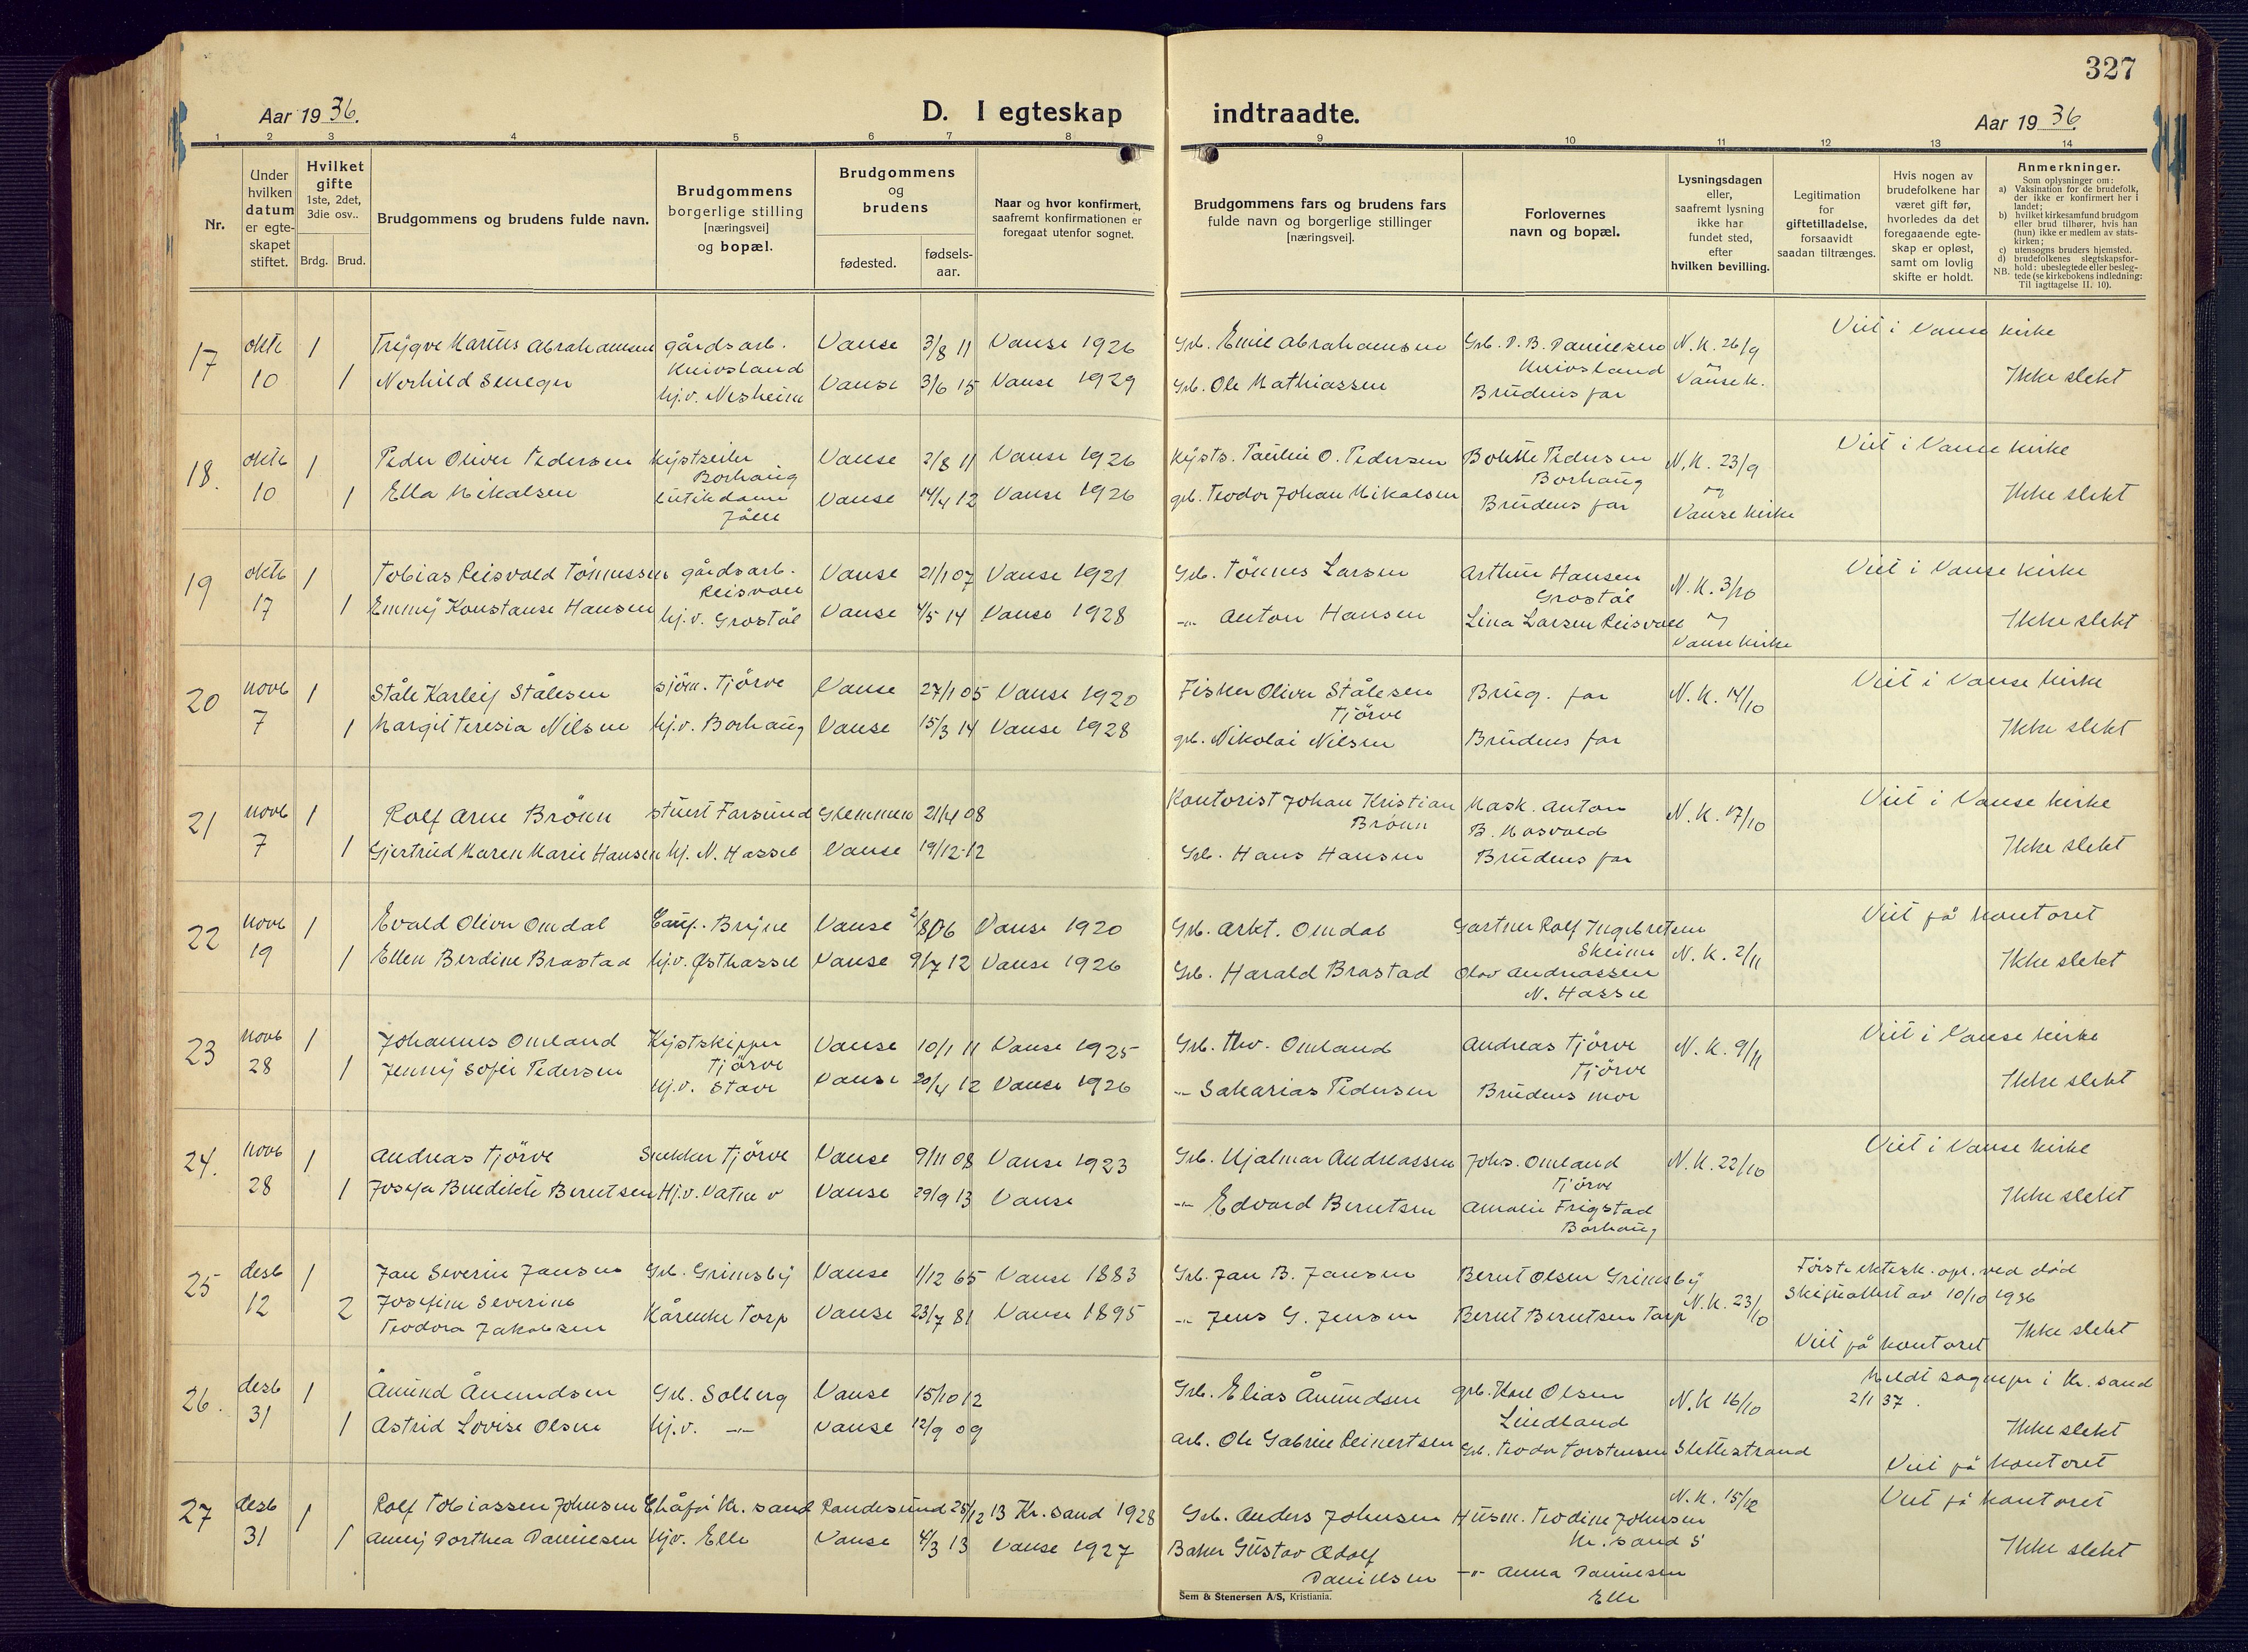 327
Aar 1936.
D. I egteskap indtraadte.
Aar 1936
1 2 3 4 5 6 7 8 9 10 11 12 13 14
Nr.
Under hvilken datum er egte-skapet stiftet.
Hvilket gifte 1ste, 2det, 3die osv..
Brdg. Brud.
Brudgommens og brudens fulde navn.
Brudgommens borgerlige stilling [næringsvei] og bopæl.
Brudgommens og brudens
fødested.
fødsels-aar.
Naar og hvor konfirmert, saafremt konfirmationen er foregaat utenfor sognet.
Brudgommens fars og brudens fars fulde navn og borgerlige stillinger [næringsvei].
Forlovernes navn og bopæl.
Lysningsdagen eller, saafremt lysning ikke har fundet sted, efter hvilken bevilling.
Legitimation for giftetilladelse, forsaavidt saadan tiltrænges.
Hvis nogen av brudefolkene har været gift før, hvorledes da det foregaaende egte-skap er opløst, samt om lovlig skifte er holdt.
Anmerkninger.
Som oplysninger om:
a) Vaksination for de brudefolk, der ikke er konfirmert her i landet;
b) hvilket kirkesamfund brudgom eller brud tilhører, hvis han (hun) ikke er medlem av stats-kirken;
c) utensogns bruders hjemsted.
d) brudefolkenes slegtskapsfor-hold: ubeslegtede eller besleg-tede (se kirkebokens indledning:
NB. Til iagttagelse II. 10).
17 okt 1 Trygve Marius Abrahamsen gårdsarb. Vanse 3/8 11 Vanse 1926 Grb. Emil Abrahamsen Grb. D. B. Danielsen N.K. 26/9 Viet i Vanse kirke
10 Kniksland Knivsland
1 hj.v. Nesheim Vanse 3/6 15 Vanse 1929 Grb. Ole Mathiassen Brudens far Vanse k. Ikke slekt
18. 1 Peder Oliver Pedersen Kystseiler Vanse 2/8 11 Vanse 1926 Kysts. O. Pedersen Pedersen N.K. 23/9 Viet i Vanse kirke
10 Borhaug Borhaug
1 Ella Mikalsen Vanse 14/4 12 Vanse 1926 grb. Teodor Johan Mikalsen Brudens far Vanse kirke Ikke slekt
19 1 Tobias Reisvold Tønnessen gårdsarb. Vanse 21/1 07 Vanse 1921 Grb. Tønnes Larsen Arthur Hansen N.K. 3/10 Viet i Vanse kirke
17 Grostøl
1 Emmy Konstanse Hansen hj.v. Grostøl Vanse 4/5 14 Vanse 1928 -"- Anton Hansen Lina Larsen Vanse kirke Ikke slekt
20 novb 1 Ståle Karleif Stålesen sjöm. Tjörve Vanse 27/1 05 Vanse 1920 Fisker Oliver Stålesen Brug. far N.K. 14/10 Viet i Vanse kirke
Tjörve
7 1 Margit Teresia Nilsen hj.v. Borhaug Vanse 15/3 14 Vanse 1928 grb. Nikolai Nilsen Brudens far Ikke slekt
21 novb 1 Rolf Arne Brönn stuert Farsund Glemmen 21/4 08 Kontorist Johan Kristian Mask. Anton N.K. 17/10 Viet i Vanse kirke
Brönn B. Mosvold
7 1 Gjertrud Maren Marie Hansen hj. N. Hassel Vanse 19/12-12 Grb. Hans Hansen Brudens far Ikke slekt
22 novb 1 Evald Oliver Omdal Bryne Vanse 2/8 06 Vanse 1920 Grb. Omdal Gartner Rolf Ingebretsen Viet på kontoret
Skeime N.K. 2/11
19 1 Ellen Berdine Brastad hj.v. Østhassel Vanse 9/7 12 Vanse 1926 Grb. Harald Brastad Olav Andreassen Ikke slekt
N. Hassel
23 novb 1 Johannes Omland Kystskipper Vanse 10/1 11 Vanse 1925 Grb. Thv. Omland Andreas Tjörve N.K. 9/11 Viet i Vanse kirke
28 Tjörve Tjörve
1 Jenny Sofie Pedersen hj.v. Stave Vanse 20/4 12 Vanse 1926 -"- Sakarias Pedersen Brudens mor Ikke slekt
24. novb 1 Andreas Tjörve Snekker Tjörve Vanse 9/11 08 Vanse 1923 Grb. Hjalmar Andreassen Johs. Omland N.K. 22/10 Viet i Vanse kirke
Tjörve
28 1 Josefa Benedikte Berntsen Hj.v. Vatne Vanse 29/9 13 Vanse -"- Edvard Berntsen Amalie Frigstad Ikke slekt
Borhaug
25 desb 1 Jan Severin Jansen Grb. Grimsby Vanse 1/12 65 Vanse 1883 Grb. Jan B. Jansen Bernt Olsen Grimsby Förste ektesk. opl. ved död
12 2 Josefine Severine N.K. 23/10 Skifteattest av 10/10 1936
Teodora Jakobsen Kårenke Torp Vanse 23/7 81 Vanse 1895 -"- Jens G. Jensen Bernt Berntsen Torp Ikke slekt
Viet på kontoret
26. desb 1 Ånund Ånundsen Grb. Solberg Vanse 15/10 12 Grb. Elias Ånundsen grb. Karl Olsen N.K 16/10 Meldt sognepr i Kr. sand
Lindland 2/1 37.
31 1 Astrid Lovise Olsen hj.v. -"- Vanse 12/9 09 arb. Ole Gabriel Reinertsen Grb. Teodor Torstensen Slettestrand Ikke slekt
Viet på kontoret
27 desb 1 Rolf Tobiassen Johnsen Kr. sand Randesund 25/12 13 Kr. sand 1928 Grb. Anders Johnsen Husm. Teodine Johnsen N.K. 15/12 Viet på kontoret
Kr. sand S
31 1 Anny Dorthea Danielsen hjv. Elle Vanse 4/3 13 Vanse 1927 Baker Gustav Adolf Danielsen -"- Anna Danielsen Ikke slekt
Elle
Sem & Stenersen A/S, Kristiania.